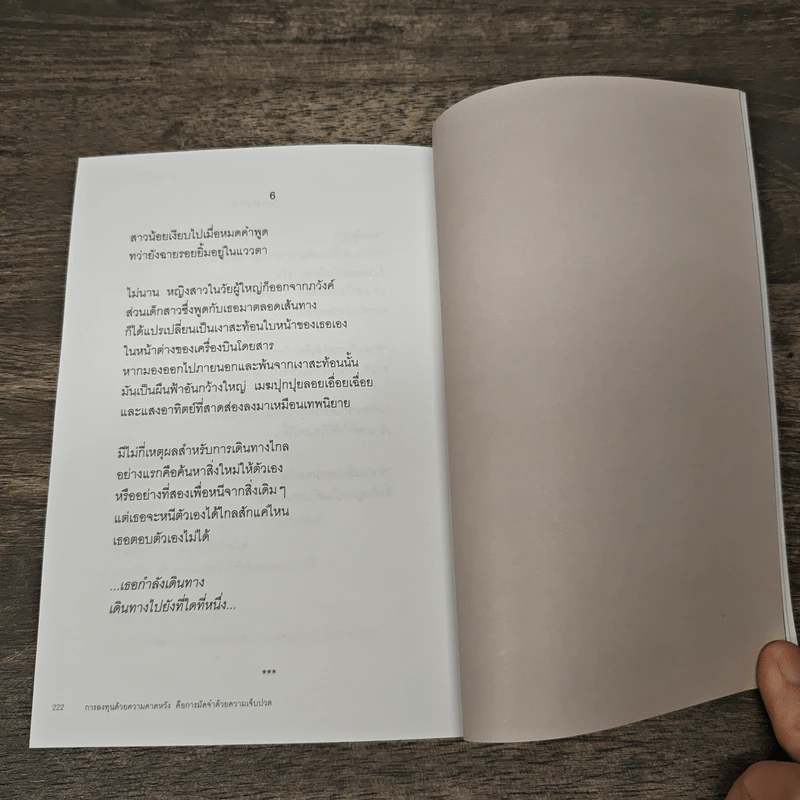 6
สาวน้อยเงียบไปเมื่อหมดคำพูด
ทว่ายังฉายรอยยิ้มอยู่ในแววตา
ไม่นาน หญิงสาวในวัยผู้ใหญ่ก็ออกจากภวังค์
ส่วนเด็กสาวซึ่งพูดกับเธอมาตลอดเส้นทาง
ก็ได้แปรเปลี่ยนเป็นเงาสะท้อนใบหน้าของเธอเอง
ในหน้าต่างของเครื่องบินโดยสาร
หากมองออกไปภายนอกและพ้นจากเงาสะท้อนนั้น
มันเป็นผืนฟ้าอันกว้างใหญ่ เมฆปุกปุยลอยเอื่อยเฉื่อย
และแสงอาทิตย์ที่สาดส่องลงมาเหมือนเทพนิยาย
มีไม่กี่เหตุผลสำหรับการเดินทางไกล
อย่างแรกคือค้นหาสิ่งใหม่ให้ตัวเอง
หรืออย่างที่สองเพื่อหนีจากสิ่งเดิม ๆ
แต่เธอจะหนีตัวเองได้ไกลสักแค่ไหน
เธอตอบตัวเองไม่ได้
...เธอกำลังเดินทาง
เดินทางไปยังที่ใดที่หนึ่ง...
***
222 การลงทุนด้วยความคาดหวัง คือการมัดจำด้วยความเจ็บปวด